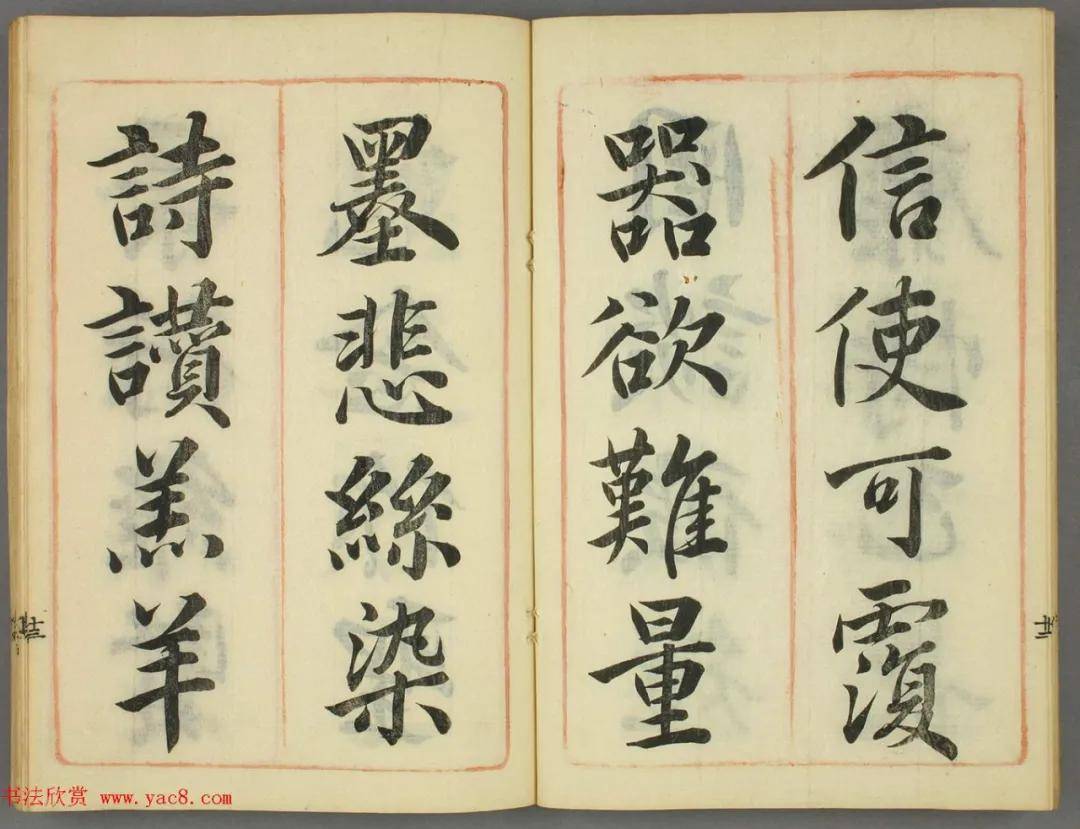 信使可覆
器欲難量
墨悲絲染
詩讃羔羊
书法欣赏 www.yac8.com